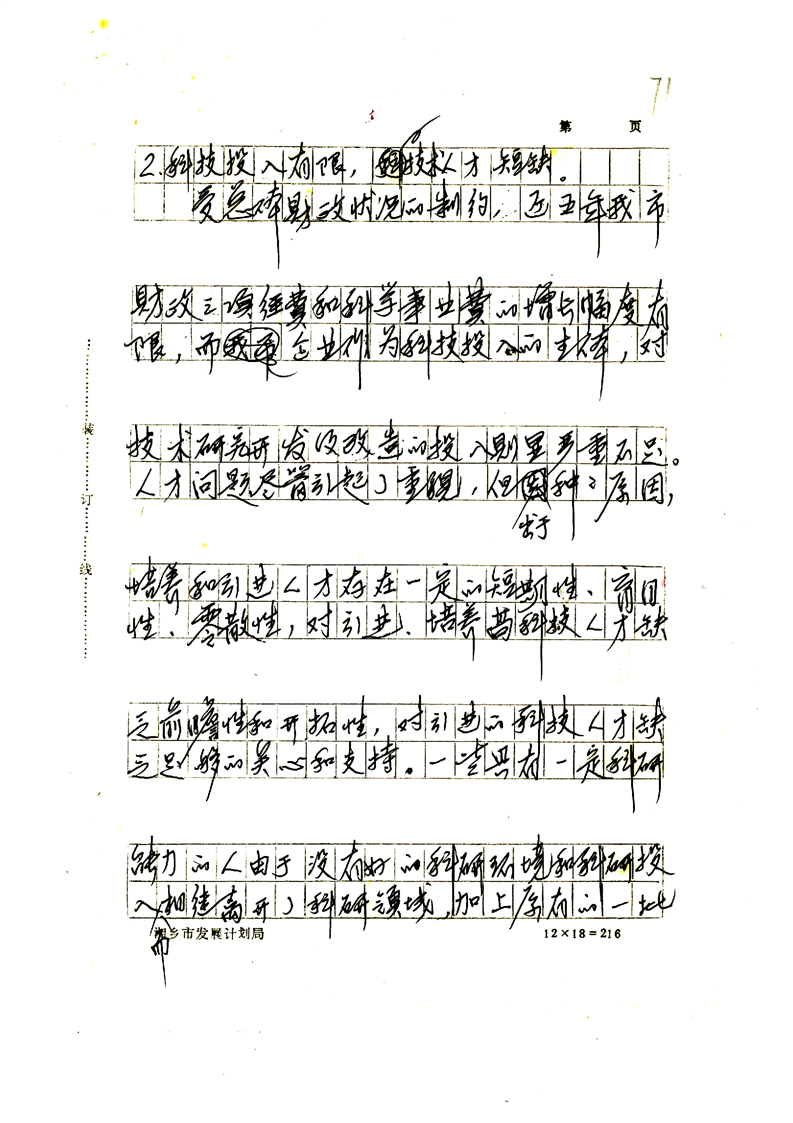 71
第 页
2.科技投入有限，科技人才短缺。
受总体财政状况的制约，近五年我市
财政三项经费和科学事业费的增长幅度有
限，而企业作为科技投入的主体，对
技术研究开发及改造的投入则显严重不足。
人才问题尽管引起了重视，但因种种原因，
出于
培养和引进人才存在一定的短期性、盲目
性、零散性，对引进、培养高科技人才缺
乏前瞻性和开拓性，对引进的科技人才缺
乏足够的关心和支持。一些具有一定科研
能力的人由于没有好的科研环境和科研投
入相继离开了科研领域，加上原有的一批
而
湘乡市发展计划局
12×18=216
装订线